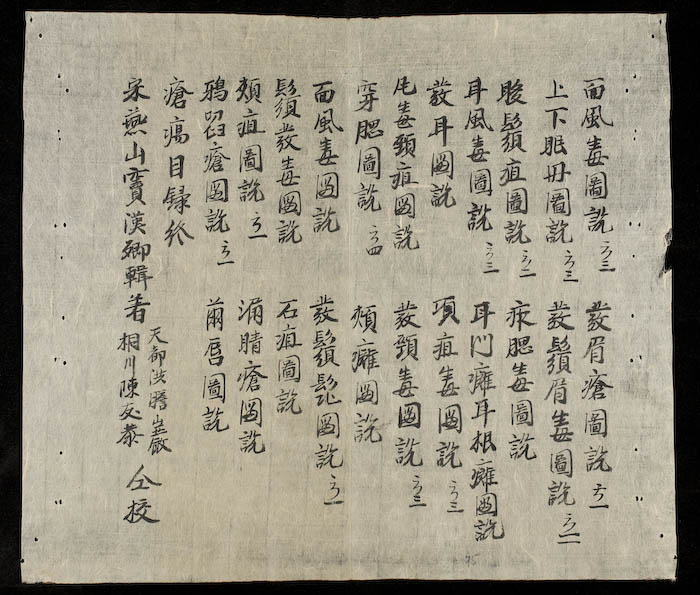 面風毒圖說 方三 發眉瘡圖說 方一
上下眠丹圖說 方三 發鬚眉毒圖說 方二
鬚疽圖說 方二 痄腮毒圖說
耳風毒圖說 方三 耳門癰耳根癰圖說
發耳圖說 項疽毒圖說 方三
毒頸疽圖說 發頸毒圖說 方三
穿腮圖說 方四 頰癰圖說
面風毒圖說 發鬚髭圖說 方一
鬚發毒圖說 石疽圖說
頰疽圖說 方一 漏睛瘡圖說
鴉啗瘡圖說 方一 繭唇圖說
瘡瘍目錄終
宋燕山竇漢卿輯著
天都洪瞻巖
桐川陳友恭
仝校